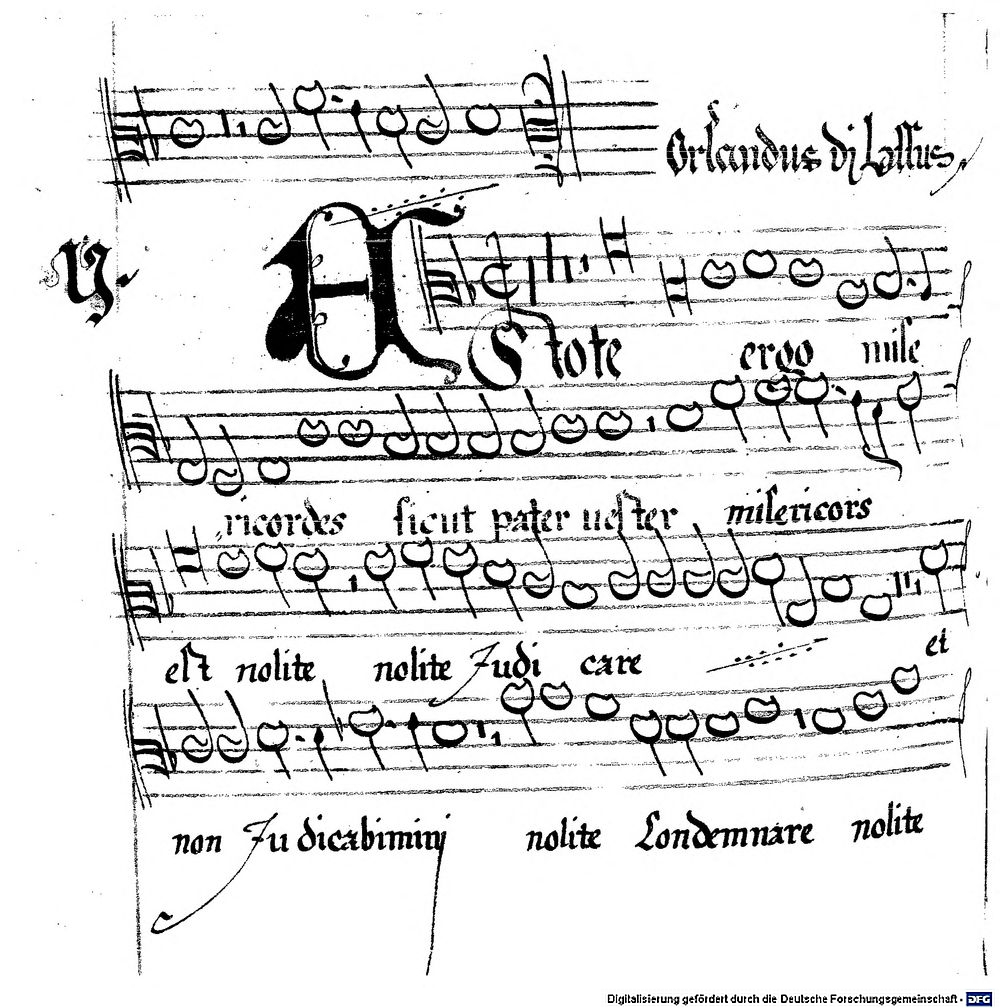 Orlandus di Lassus
EStote ergo mise
ricordes sicut pater uester misericors
est nolite nolite Judi care et
non Judicabimini nolite Condemnare nolite
Digitalisierung gefördert durch die Deutsche Forschungsgemeinschaft - DFG